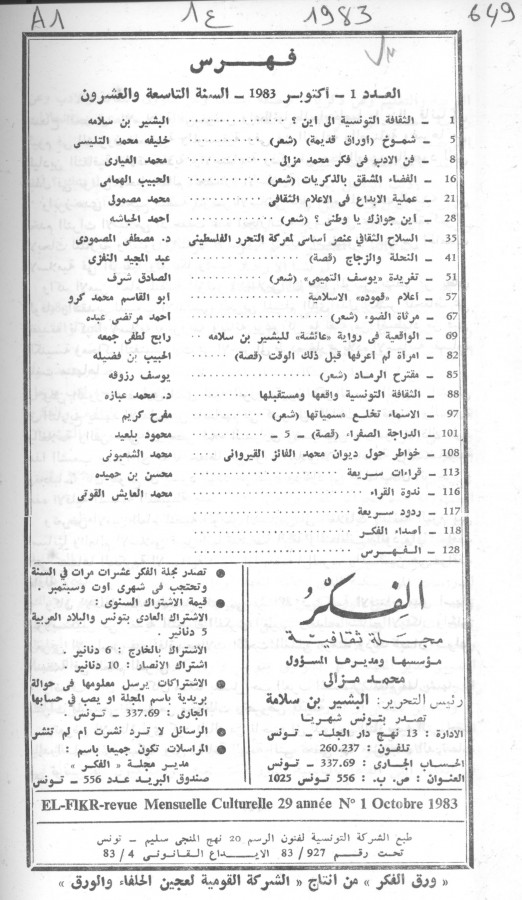 A1 14 1983 649
فهرس
العدد 1 ـ أكتوبر 1983 ـ السنة التاسعة والعشرون
1 ـ الثقافة التونسية الى اين ؟ ٠٠٠٠٠٠٠٠ البشير بن سلامه
5 ـ شموخ (اوراق قديمة) (شعر) ٠٠٠٠٠٠ خليفه محمد التليسي
8 ـ فن الادب فى فكر محمد مزالى ٠٠٠٠٠٠ محمد العيارى
16 ـ الفضاء المشقق بالذكريات (شعر) ٠٠٠٠ الحبيب الهمامى
21 ـ عملية الابداع فى الاعلام الثقافى ٠٠٠٠٠ محمد مصمولى
28 ـ اين جوازك يا وطنى ؟ (شعر) ٠٠٠٠٠٠ احمد الحباشه
35 ـ السلاح الثقافي عنصر أساسى لمعركة التحرر الفلسطيني د. مصطفى المصمودى
41 ـ النحلة والزجاج (قصة) ٠٠٠٠٠٠٠٠ عبد المجيد النفزى
51 ـ تغريدة «يوسف التميمى» (شعر) ٠٠٠٠٠ الصادق شرف
57 ـ أعلام «قموده» الاسلامية ٠٠٠٠٠٠٠٠ أبو القاسم محمد كرو
67 ـ مرثاة الضوء (شعر) ٠٠٠٠٠٠٠٠ احمد مرتضى عبده
69 ـ الواقعية فى رواية «عائشة» للبشير بن سلامه رابح لطفى جمعه
82 ـ امرأة لم أعرفها قبل ذلك الوقت (قصة) ٠٠ الحبيب بن فضيله
85 ـ مقترح الرماد (شعر) ٠٠٠٠٠٠٠٠ يوسف رزوقه
88 ـ الثقافة التونسية واقعها ومستقبلها ٠٠٠٠ د. محمد عبازه
97 ـ الاسماء تخلع مسمياتها (شعر) ٠٠٠٠٠٠ مفرح كريم
101 ـ الدراجة الصفراء (قصة) ـ 5 ـ ٠٠٠٠٠ محمود بلعيد
108 ـ خواطر حول ديوان محمد الفائز القيروانى محمد الشعبونى
113 ـ قراءات سريعة ٠٠٠٠٠٠٠٠ محسن بن حميده
116 ـ ندوة القراء ٠٠٠٠٠٠٠٠ محمد العايش القوتى
117 ـ ردود سريعة ٠٠٠٠٠٠٠٠
118 ـ أصداء الفكر ٠٠٠٠٠٠٠٠
128 ـ الفهرس ٠٠٠٠٠٠٠٠
الفكر
مجلة ثقافية
مؤسسها ومديرها المسؤول
محمد مزالى
رئيس التحرير : البشير بن سلامة
تصدر بتونس شهريا
الادارة : 13 نهج دار الجلد ـ تونس
تلفون : 260.237
الحساب الجارى : 337.69 ـ تونس
العنوان : ص. ب. : 556 تونس 1025
● تصدر مجلة الفكر عشرات مرات في السنة
وتحتجب فى شهرى اوت وسبتمبر .
● قيمة الاشتراك السنوى :
الاشتراك العادى بتونس والبلاد العربية
5 دنانير .
الاشتراك بالخارج : 6 دنانير .
اشتراك الانصار : 10 دنانير
● الاشتراكات يرسل معلومها فى حوالة
بريدية باسم المجلة او يصب في حسابها
الجارى : 337.69 ـ تونس .
● الرسائل لا ترد نشرت ام لم تنشر
● المراسلات تكون جميعا باسم :
مدير مجلة « الفكر »
صندوق البريد عدد 556 ـ تونس
EL-FIKR-revue Mensuelle Culturelle 29 année N° 1 Octobre 1983
طبع الشركة التونسية لفنون الرسم 20 نهج المنجى سليم ـ تونس
تحت رقم 927 / 83 الايداع القانونى 4 / 83
« ورق الفكر » من انتاج « الشركة القومية لعجين الحلفاء والورق »